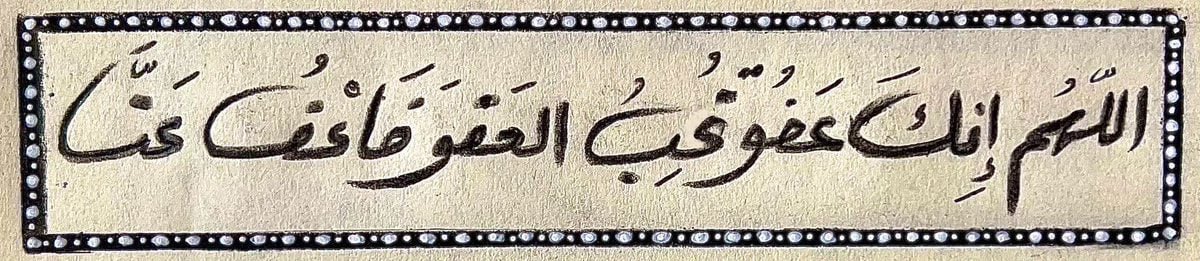 اللّهُم إِنكَ عَفُوّ تُحِبُ العَفوَ فَاعْفُ عَنَّا